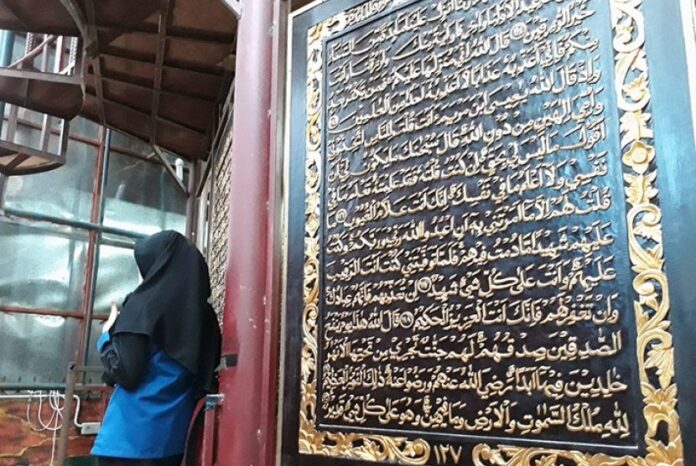 انزل علينا مائدة من السماء
عيدا لاولنا واخرنا واية منك وارزقنا وانت
خير الرزقين ١١٤ قال الله اني منزلها عليكم فمن يكفر بعد
منكم فاني اعذبه عذابا لا اعذبه احدا من العلمين ١١٥
واذ قال الله يعيسى ابن مريم ءانت قلت للناس اتخذوني
وامي الهين من دون الله قال سبحنك ما يكون لي ان
اقول ما ليس لي بحق ان كنت قلته فقد علمته تعلم ما في
نفسي ولا اعلم ما في نفسك انك انت علام الغيوب ١١٦ ما
قلت لهم الا ما امرتني به ان اعبدوا الله ربي وربكم وكنت
عليهم شهيدا ما دمت فيهم فلما توفيتني كنت انت الرقيب
عليهم وانت على كل شيء شهيد ١١٧ ان تعذبهم فانهم عبادك
وان تغفر لهم فانك انت العزيز الحكيم ١١٨ قال الله هذا يوم ينفع
الصدقين صدقهم لهم جنت تجري من تحتها الانهر
خلدين فيها ابدا رضي الله عنهم ورضوا عنه ذلك الفوز العظيم
لله ملك السموت والارض وما فيهن وهو على كل شيء قدير
١٢٧